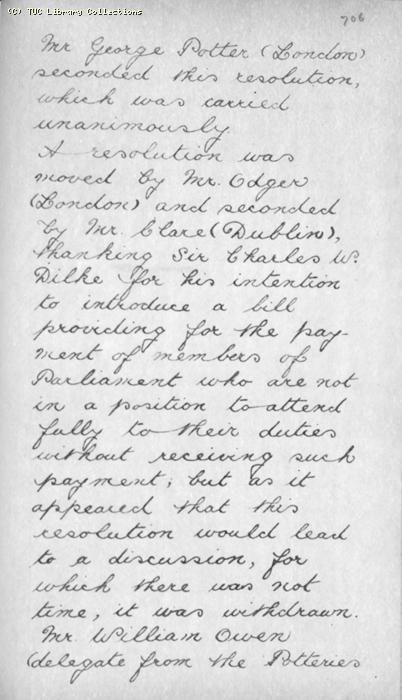 (C) TUC Library Collections
706
Mr George Potter (London)
seconded this resolution,
which was carried
unanimously.
A resolution was
moved by Mr. Odger
(London) and seconded
by Mr. Clare (Dublin),
thanking Sir Charles W.
Dilke for his intention
to introduce a bill
providing for the pay-
ment of members of
Parliament who are not
in a position to attend
fully to their duties
without receiving such
payment; but as it
appeared that this
resolution would lead
to a discussion, for
which there was not
time, it was withdrawn.
Mr. William Owen
(delegate from the Potteries